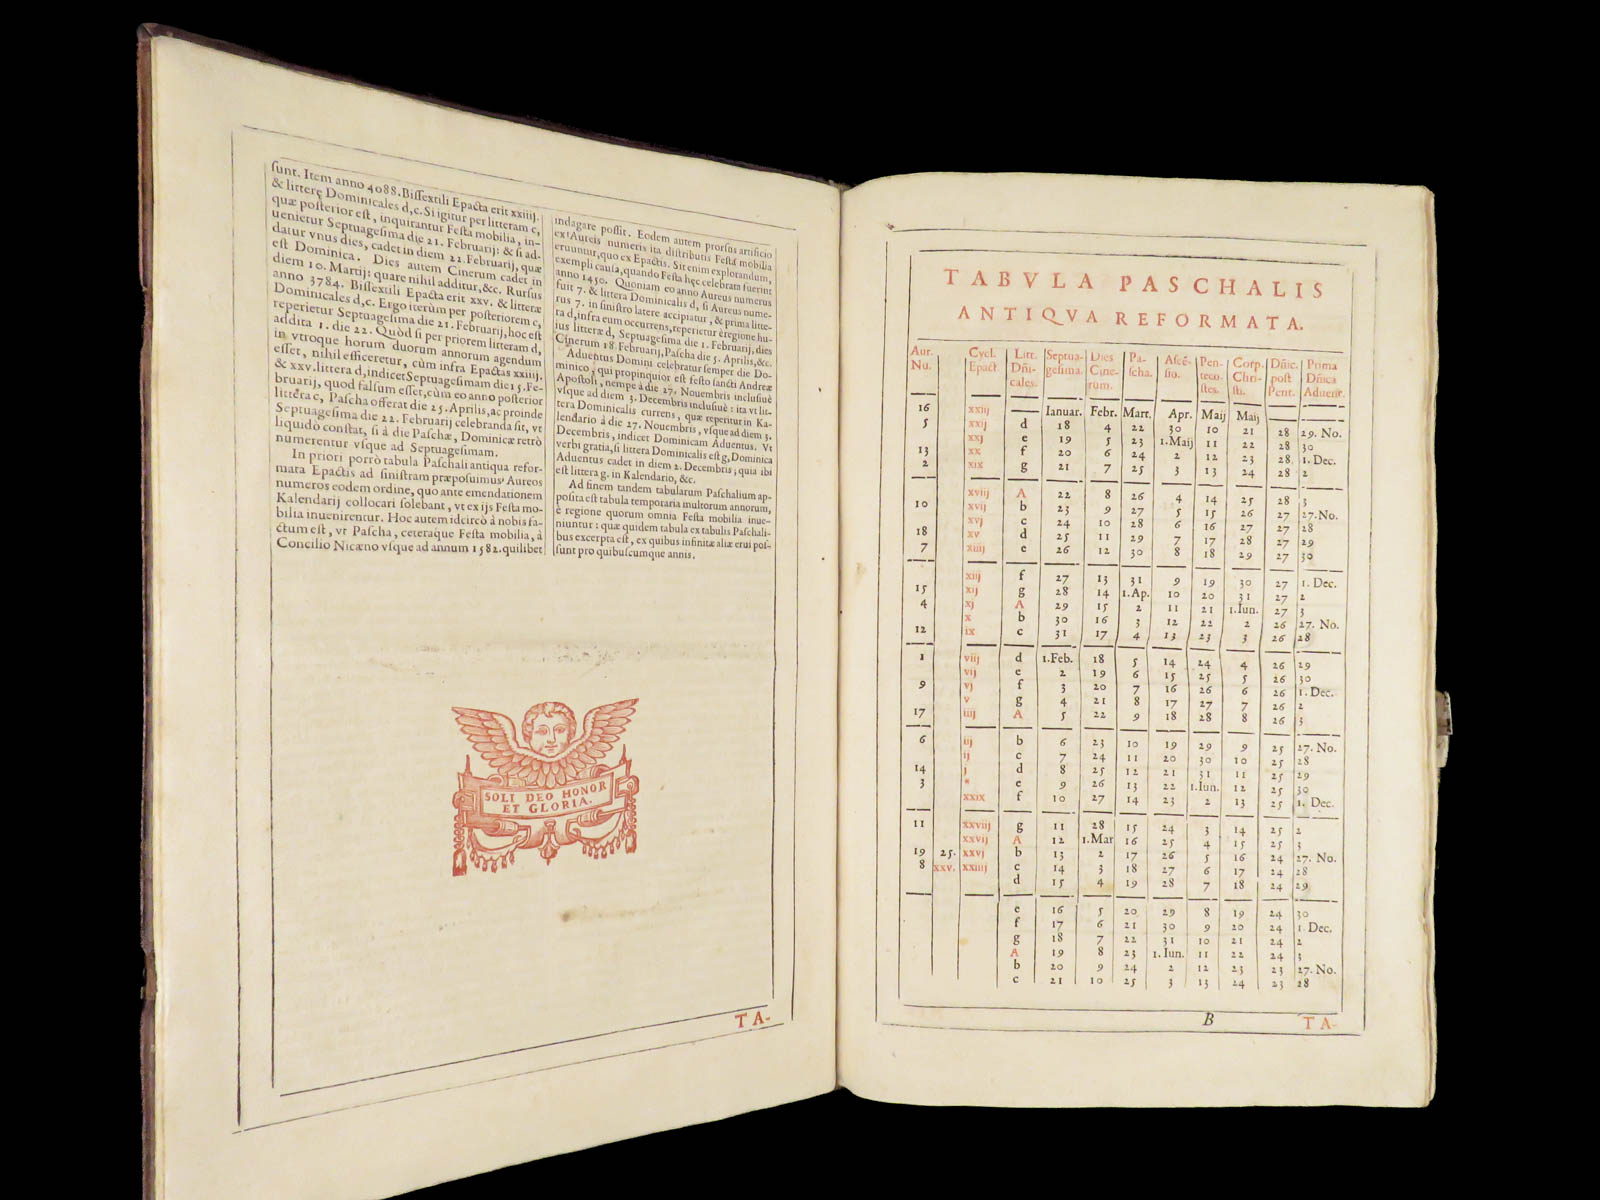 ſunt. Item anno 4088. Biſſextili Epacta erit xxiiij.
& litterę Dominicales d, c. Si igitur per litteram c,
quæ poſterior eſt, inquirantur Feſta mobilia, in-
uenietur Septuageſima die 21. Februarij: & ſi ad-
datur vnus dies, cadet in diem 22. Februarij, quæ
eſt Dominica. Dies autem Cinerum cadet in
diem 10. Martij: quare nihil additur, &c. Rurſus
anno 3784. Biſſextili Epacta erit xxv. & litteræ
Dominicales d, c. Ergo iterùm per poſteriorem c,
reperietur Septuageſima die 21. Februarij, hoc eſt
addita 1. die 22. Quòd ſi per priorem litteram d,
in vtroque horum duorum annorum agendum
eſſet, nihil efficeretur, cùm infra Epactas xxiiij.
& xxv. littera d, indicet Septuageſimam die 15. Fe-
bruarij, quod falſum eſſet, cùm eo anno poſterior
littera c, Paſcha offerat die 25. Aprilis, ac proinde
Septuageſima die 22. Februarij celebranda ſit, vt
liquidò conſtat, ſi à die Paſchæ, Dominicæ retrò
numerentur vſque ad Septuageſimam.
In priori porrò tabula Paſchali antiqua refor-
mata Epactis ad ſiniſtram præpoſuimus Aureos
numeros eodem ordine, quo ante emendationem
Kalendarij collocari ſolebant, vt ex ijs Feſta mo-
bilia inuenirentur. Hoc autem idcircò à nobis fa-
ctum eſt, vt Paſcha, ceteraque Feſta mobilia, à
Concilio Nicæno vſque ad annum 1582. quilibet
indagare poſſit. Eodem autem prorſus artificio
ex Aureis numeris ita diſtributis Feſta mobilia
eruuntur, quo ex Epactis. Sit enim explorandum,
exempli cauſa, quando Feſta hęc celebrata fuerint
anno 1450. Quoniam eo anno Aureus numerus
fuit 7. & littera Dominicalis d, ſi Aureus nume-
rus 7. in ſiniſtro latere accipiatur, & prima litte-
ra d, infra eum occurrens, reperietur è regione hu-
ius litteræ d, Septuageſima die 1. Februarij, dies
Cinerum 18. Februarij, Paſcha die 5. Aprilis, &c.
Aduentus Domini celebratur ſemper die Do-
minico, qui propinquior eſt feſto ſancti Andreæ
Apoſtoli, nempe à die 27. Nouembris incluſiuè
vſque ad diem 3. Decembris incluſiuè: ita vt lit-
tera Dominicalis currens, quæ reperitur in Ka-
lendario à die 27. Nouembris, vſque ad diem 3.
Decembris, indicet Dominicam Aduentus. Vt
verbi gratia, ſi littera Dominicalis eſt g, Dominica
Aduentus cadet in diem 2. Decembris; quia ibi
eſt littera g. in Kalendario, &c.
Ad finem tandem tabularum Paſchalium ap-
poſita eſt tabula temporaria multorum annorum,
è regione quorum omnia Feſta mobilia inue-
niuntur: quæ quidem tabula ex tabulis Paſchali-
bus excerpta eſt, ex quibus infinitæ aliæ erui poſ-
ſunt pro quibuſcumque annis.
SOLI DEO HONOR
ET GLORIA.
TA-
TABVLA PASCHALIS
ANTIQVA REFORMATA.
Aur. Nu. Cycl. Epact. Litt. Dñi- cales. Septua- geſima. Dies Cine- rum. Pa- ſcha. Aſcē- ſio. Pen- teco- ſtes. Corp. Chri- ſti. Dñic. poſt Pent. Prima Dñica Aduent.
16 xxiij Ianuar. Febr. Mart. Apr. Maij Maij
5 xxij d 18 4 22 30 10 21 28 29. No.
xxj e 19 5 23 1.Maij 11 22 28 30
13 xx f 20 6 24 2 12 23 28 1. Dec.
2 xix g 21 7 25 3 13 24 28 2
xviij A 22 8 26 4 14 25 28 3
10 xvij b 23 9 27 5 15 26 27 27.No.
xvj c 24 10 28 6 16 27 27 28
18 xv d 25 11 29 7 17 28 27 29
7 xiiij e 26 12 30 8 18 29 27 30
xiij f 27 13 31 9 19 30 27 1. Dec.
15 xij g 28 14 1.Ap. 10 20 31 27 2
4 xj A 29 15 2 11 21 1.Iun. 27 3
x b 30 16 3 12 22 2 26 27. No.
12 ix c 31 17 4 13 23 3 26 28
1 viij d 1.Feb. 18 5 14 24 4 26 29
vij e 2 19 6 15 25 5 26 30
9 vj f 3 20 7 16 26 6 26 1. Dec.
v g 4 21 8 17 27 7 26 2
17 iiij A 5 22 9 18 28 8 26 3
6 iij b 6 23 10 19 29 9 25 27. No.
ij c 7 24 11 20 30 10 25 28
14 j d 8 25 12 21 31 11 25 29
3 * e 9 26 13 22 1.Iun. 12 25 30
xxix f 10 27 14 23 2 13 25 1. Dec.
11 xxviij g 11 28 15 24 3 14 25 2
xxvij A 12 1.Mar 16 25 4 15 25 3
19 25. xxvj b 13 2 17 26 5 16 24 27. No.
8 xxv. xxiiij c 14 3 18 27 6 17 24 28
d 15 4 19 28 7 18 24 29
e 16 5 20 29 8 19 24 30
f 17 6 21 30 9 20 24 1 Dec.
g 18 7 22 31 10 21 24 2
A 19 8 23 1. Iun. 11 22 24 3
b 20 9 24 2 12 23 23 27. No.
c 21 10 25 3 13 24 23 28
B TA-